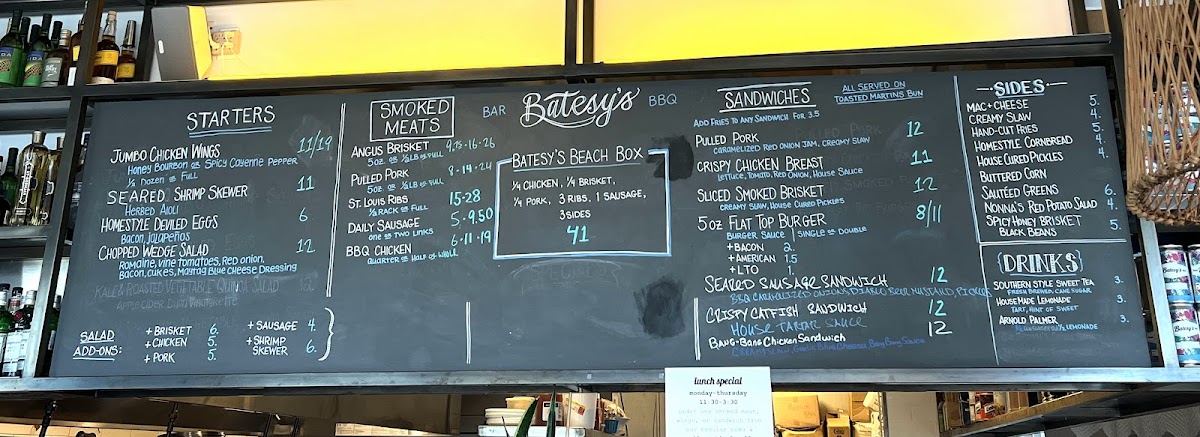 STARTERS
JUMBO CHICKEN WINGS 11/19
HONEY BOURBON OR SPICY CAYENNE PEPPER
1/2 DOZEN OR FULL
SEARED SHRIMP SKEWER 11
HERBED AIOLI
HOMESTYLE DEVILED EGGS 6
BACON, JALAPEÑOS
CHOPPED WEDGE SALAD 12
ROMAINE, VINE TOMATOES, RED ONION,
BACON, CUKES, MAYTAG BLUE CHEESE DRESSING
KALE & ROASTED VEGETABLE QUINOA SALAD 12
SALAD ADD-ONS:
+ BRISKET 6.
+ CHICKEN 5.
+ PORK 5.
+ SAUSAGE 4.
+ SHRIMP
SKEWER 6.
SMOKED
MEATS
ANGUS BRISKET 9.75-16-26
5OZ. OR 1/2LB OR FULL
PULLED PORK 8-14-24
5OZ. OR 1/2LB OR FULL
ST. LOUIS RIBS 15-28
1/2 RACK OR FULL
DAILY SAUSAGE 5-9.50
ONE OR TWO LINKS
BBQ CHICKEN 6-11-19
QUARTER OR HALF OR WHOLE
BAR BATESY'S BBQ
BATESY'S BEACH BOX
1/4 CHICKEN, 1/4 BRISKET,
1/4 PORK, 3 RIBS, 1 SAUSAGE,
3 SIDES
41
SANDWICHES
ALL SERVED ON
TOASTED MARTINS BUN
ADD FRIES TO ANY SANDWICH FOR 3.5
PULLED PORK 12
CARAMELIZED RED ONION JAM, CREAMY SLAW
CRISPY CHICKEN BREAST 11
LETTUCE, TOMATO, RED ONION, HOUSE SAUCE
SLICED SMOKED BRISKET 12
CREAMY SLAW, HOUSE CURED PICKLES
5OZ FLAT TOP BURGER 8/11
BURGER SAUCE | SINGLE OR DOUBLE
+ BACON 2.
+ AMERICAN 1.5
+ LTO 1.
SEARED SAUSAGE SANDWICH 12
BBQ CARAMOLIZED ONIONS, DIABLO BEER MUSTARD PICKLES
CRISPY CATFISH SANDWICH 12
HOUSE TARTAR SAUCE
BANG-BANG CHICKEN SANDWICH 12
SIDES
MAC + CHEESE 5.
CREAMY SLAW 4.
HAND-CUT FRIES 5.
HOMESTYLE CORNBREAD 4.
HOUSE CURED PICKLES 4.
BUTTERED CORN
SAUTÉED GREENS 6.
NONNA'S RED POTATO SALAD 4.
SPICY HONEY BRISKET 5.
BLACK BEANS
{DRINKS}
SOUTHERN STYLE SWEET TEA 3.
FRESH BREWED, CANE SUGAR
HOUSE MADE LEMONADE 3.
TART, HINT OF SWEET
ARNOLD PALMER 3.
1/2 LEMONADE
lunch special
monday-thursday
11:30-3:30